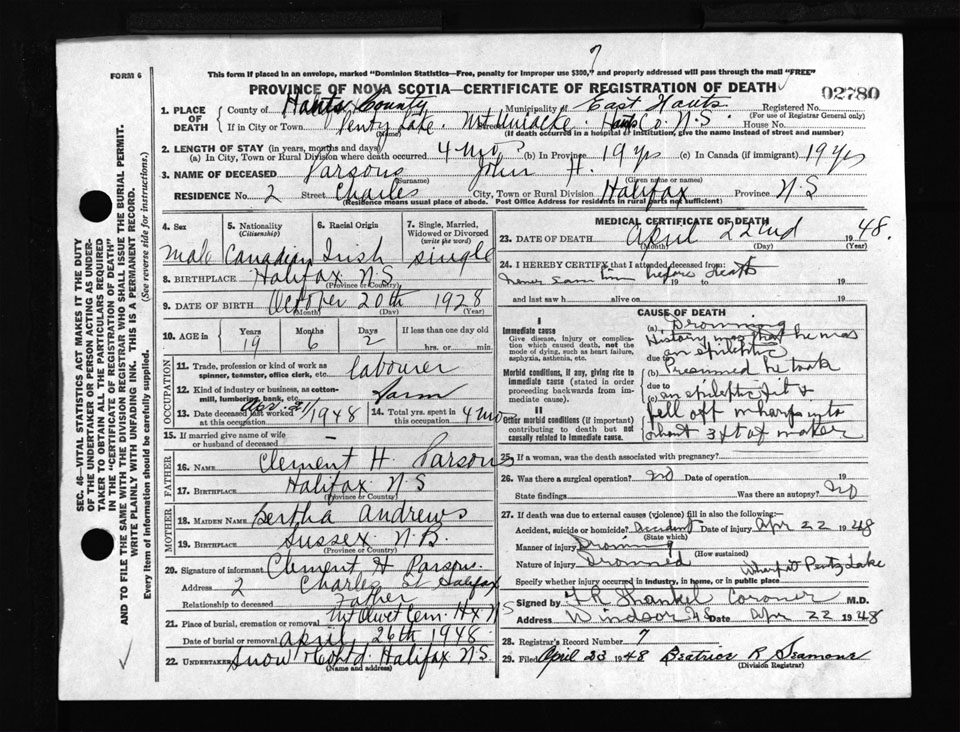 7
FORM 6
This form if placed in an envelope, marked "Dominion Statistics—Free, penalty for improper use $300," and properly addressed will pass through the mail "FREE"
PROVINCE OF NOVA SCOTIA—CERTIFICATE OF REGISTRATION OF DEATH
02780
1. PLACE OF DEATH
County of Hants County Municipality of East Hants Registered No.
(For use of Registrar General only)
If in City or Town Pentz Lake. Mt Uniacke. Hants Co. N.S. House No.
(Name) (If death occurred in a hospital or institution, give the name instead of street and number)
2. LENGTH OF STAY (in years, months and days)
(a) In City, Town or Rural Division where death occurred 4 mos (b) In Province 19 yrs (c) In Canada (if immigrant) 19 yrs
3. NAME OF DECEASED Parsons John H.
(Surname) (Given name or names)
RESIDENCE No. 2 Street Charles City, Town or Rural Division Halifax Province N.S
(Residence means usual place of abode. Post Office Address for residents in rural parts not sufficient)
4. Sex
male
5. Nationality (Citizenship)
Canadian
6. Racial Origin
Irish
7. Single, Married, Widowed or Divorced (write the word)
single
8. BIRTHPLACE Halifax N.S
(Province or Country)
9. DATE OF BIRTH October 20th 1928
(Month) (Day) (Year)
10. AGE in Years Months Days If less than one day old
19 6 2 hrs. or min.
OCCUPATION
11. Trade, profession or kind of work as spinner, teamster, office clerk, etc. labourer
12. Kind of industry or business, as cotton-mill, lumbering, bank, etc. Farm
13. Date deceased last worked at this occupation Apr. 21/1948
14. Total yrs. spent in this occupation 4 mos
15. If married give name of wife or husband of deceased —
FATHER
16. NAME Clement H. Parsons
17. BIRTHPLACE Halifax N.S
(Province or Country)
MOTHER
18. MAIDEN NAME Bertha Andrews
19. BIRTHPLACE Sussex N.B.
(Province or Country)
20. Signature of informant Clement H Parsons.
Address 2 Charles St Halifax
Relationship to deceased Father
21. Place of burial, cremation or removal Mt Olivet Cem. Hx N S
Date of burial or removal April 26th 1948
22. UNDERTAKER Snow & Co Ltd Halifax N.S.
(Name and address)
MEDICAL CERTIFICATE OF DEATH
23. DATE OF DEATH April 22nd 1948.
(Month) (Day) (Year)
24. I HEREBY CERTIFY that I attended deceased from:
never saw him before death
19 to 19
and last saw h alive on 19
CAUSE OF DEATH
I
Immediate cause
Give disease, injury or complication which caused death, not the mode of dying, such as heart failure, asphyxia, asthenia, etc.
Morbid conditions, if any, giving rise to immediate cause (stated in order proceeding backwards from immediate cause).
II
Other morbid conditions (if important) contributing to death but not causally related to immediate cause.
(a) Drowning
History was that he was
due to an epileptic
(b) Presumed he took
due to
(c) an epileptic fit &
fell off wharf into
about 3 ft of water
25. If a woman, was the death associated with pregnancy?
26. Was there a surgical operation? no Date of operation 19
State findings Was there an autopsy? no
27. If death was due to external causes (violence) fill in also the following:—
Accident, suicide or homicide? Accident Date of injury Apr 22 1948
(State which)
Manner of injury Drowning
(How sustained)
Nature of injury Drowned Wharf at Pentz Lake
Specify whether injury occurred in industry, in home, or in public place
Signed by F R Shankel Coroner M.D.
Address Windsor NS Date Apr 22 1948
28. Registrar's Record Number 7
29. Filed April 23 1948 Beatrice R Seamour
(Division Registrar)
SEC. 46—VITAL STATISTICS ACT MAKES IT THE DUTY OF THE UNDERTAKER OR PERSON ACTING AS UNDERTAKER TO OBTAIN ALL THE PARTICULARS REQUIRED IN THE "CERTIFICATE OF REGISTRATION OF DEATH" AND TO FILE THE SAME WITH THE DIVISION REGISTRAR WHO SHALL ISSUE THE BURIAL PERMIT.
WRITE PLAINLY WITH UNFADING INK. THIS IS A PERMANENT RECORD.
Every item of information should be carefully supplied. (See reverse side for instructions.)